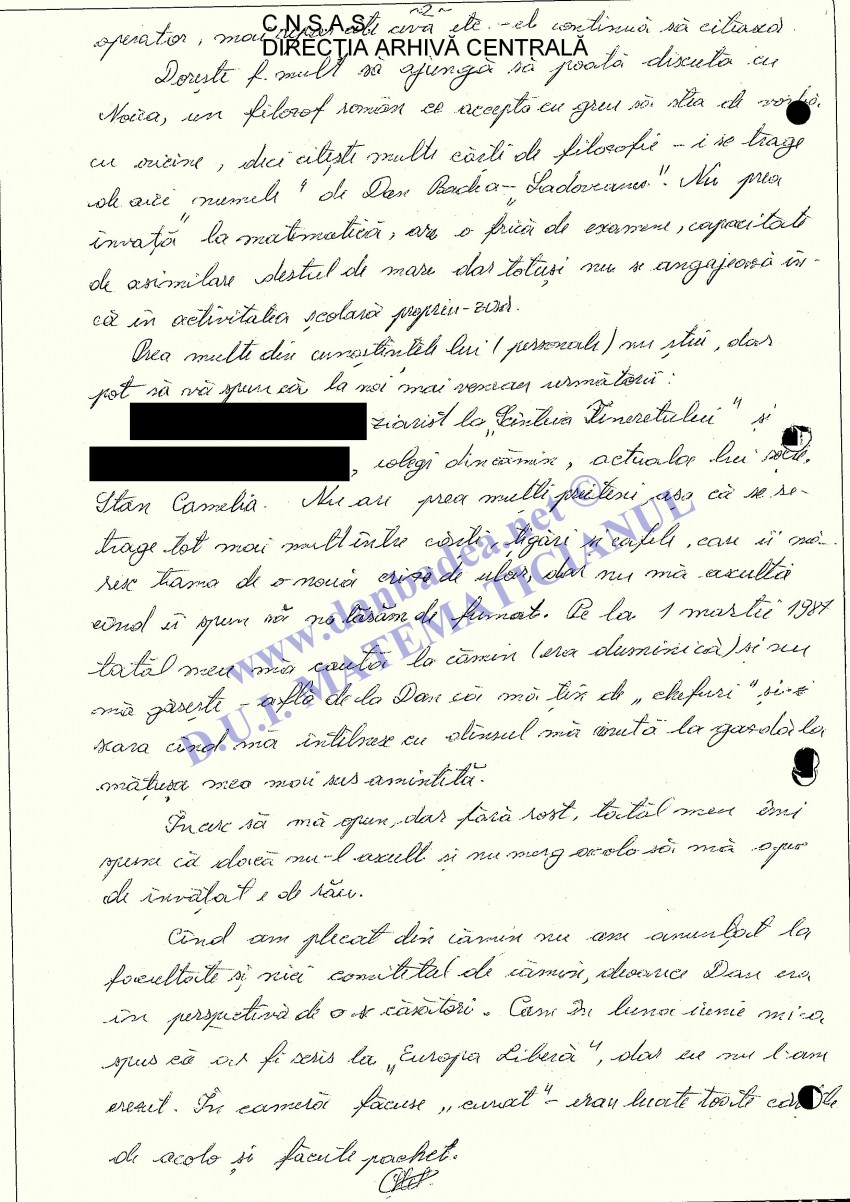 -2-
C.N.S.A.S.
DIRECȚIA ARHIVĂ CENTRALĂ
operator, mai ceva etc. - el continuă să citească.
Dorește f. mult să ajungă să poată discuta cu
Noica, un filozof român ce acceptă cu greu să stea de vorbă
cu oricine, deci citește multe cărți de filozofie - i se trage
de aici numele "de Dan Badea - "Sadoveanu". Nu prea
învață" la matematică, are o frică de examene, capacitate
de asimilare destul de mare dar totuși nu se angajează în-
că în activitatea școlară propriu-zisă.
Prea multe din cunoștințele lui (personale) nu știu, dar
pot să vă spun că la noi mai veneau următorii:
ziarist la "Scînteia Tineretului" și
, colegi din cămin, actuala lui soție,
Stan Camelia. Nu are prea mulți prieteni așa că se re-
trage tot mai mult între cărți, țigări și cafele, care îi mă-
resc teama de o nouă criză de ulcer, dar nu mă ascultă
cînd îi spun să ne lăsăm de fumat. Pe la 1 martie 1987
tatăl meu mă caută la cămin (era duminică) și nu
mă găsește - află de la Dan că mă țin de "chefuri" și
seara cînd mă întîlnesc cu dînsul mă mută la gazdă la
mătușa mea mai sus amintită.
Încerc să mă opun, dar fără rost, tatăl meu îmi
spune că dacă nu-l ascult și nu merg acolo să mă apuc
de învățat e de rău.
Cînd am plecat din cămin nu am anunțat la
facultate și nici comitetul de cămin, deoarece Dan era
în perspectivă de a se căsători. Cam în luna iunie mi-a
spus că ar fi scris la "Europa Liberă", dar eu nu l-am
crezut. În cameră făcuse "curat" - erau luate toate cărțile
de acolo și făcute pachet.
www.danbadea.net ©
D.U.I. MATEMATICIANUL